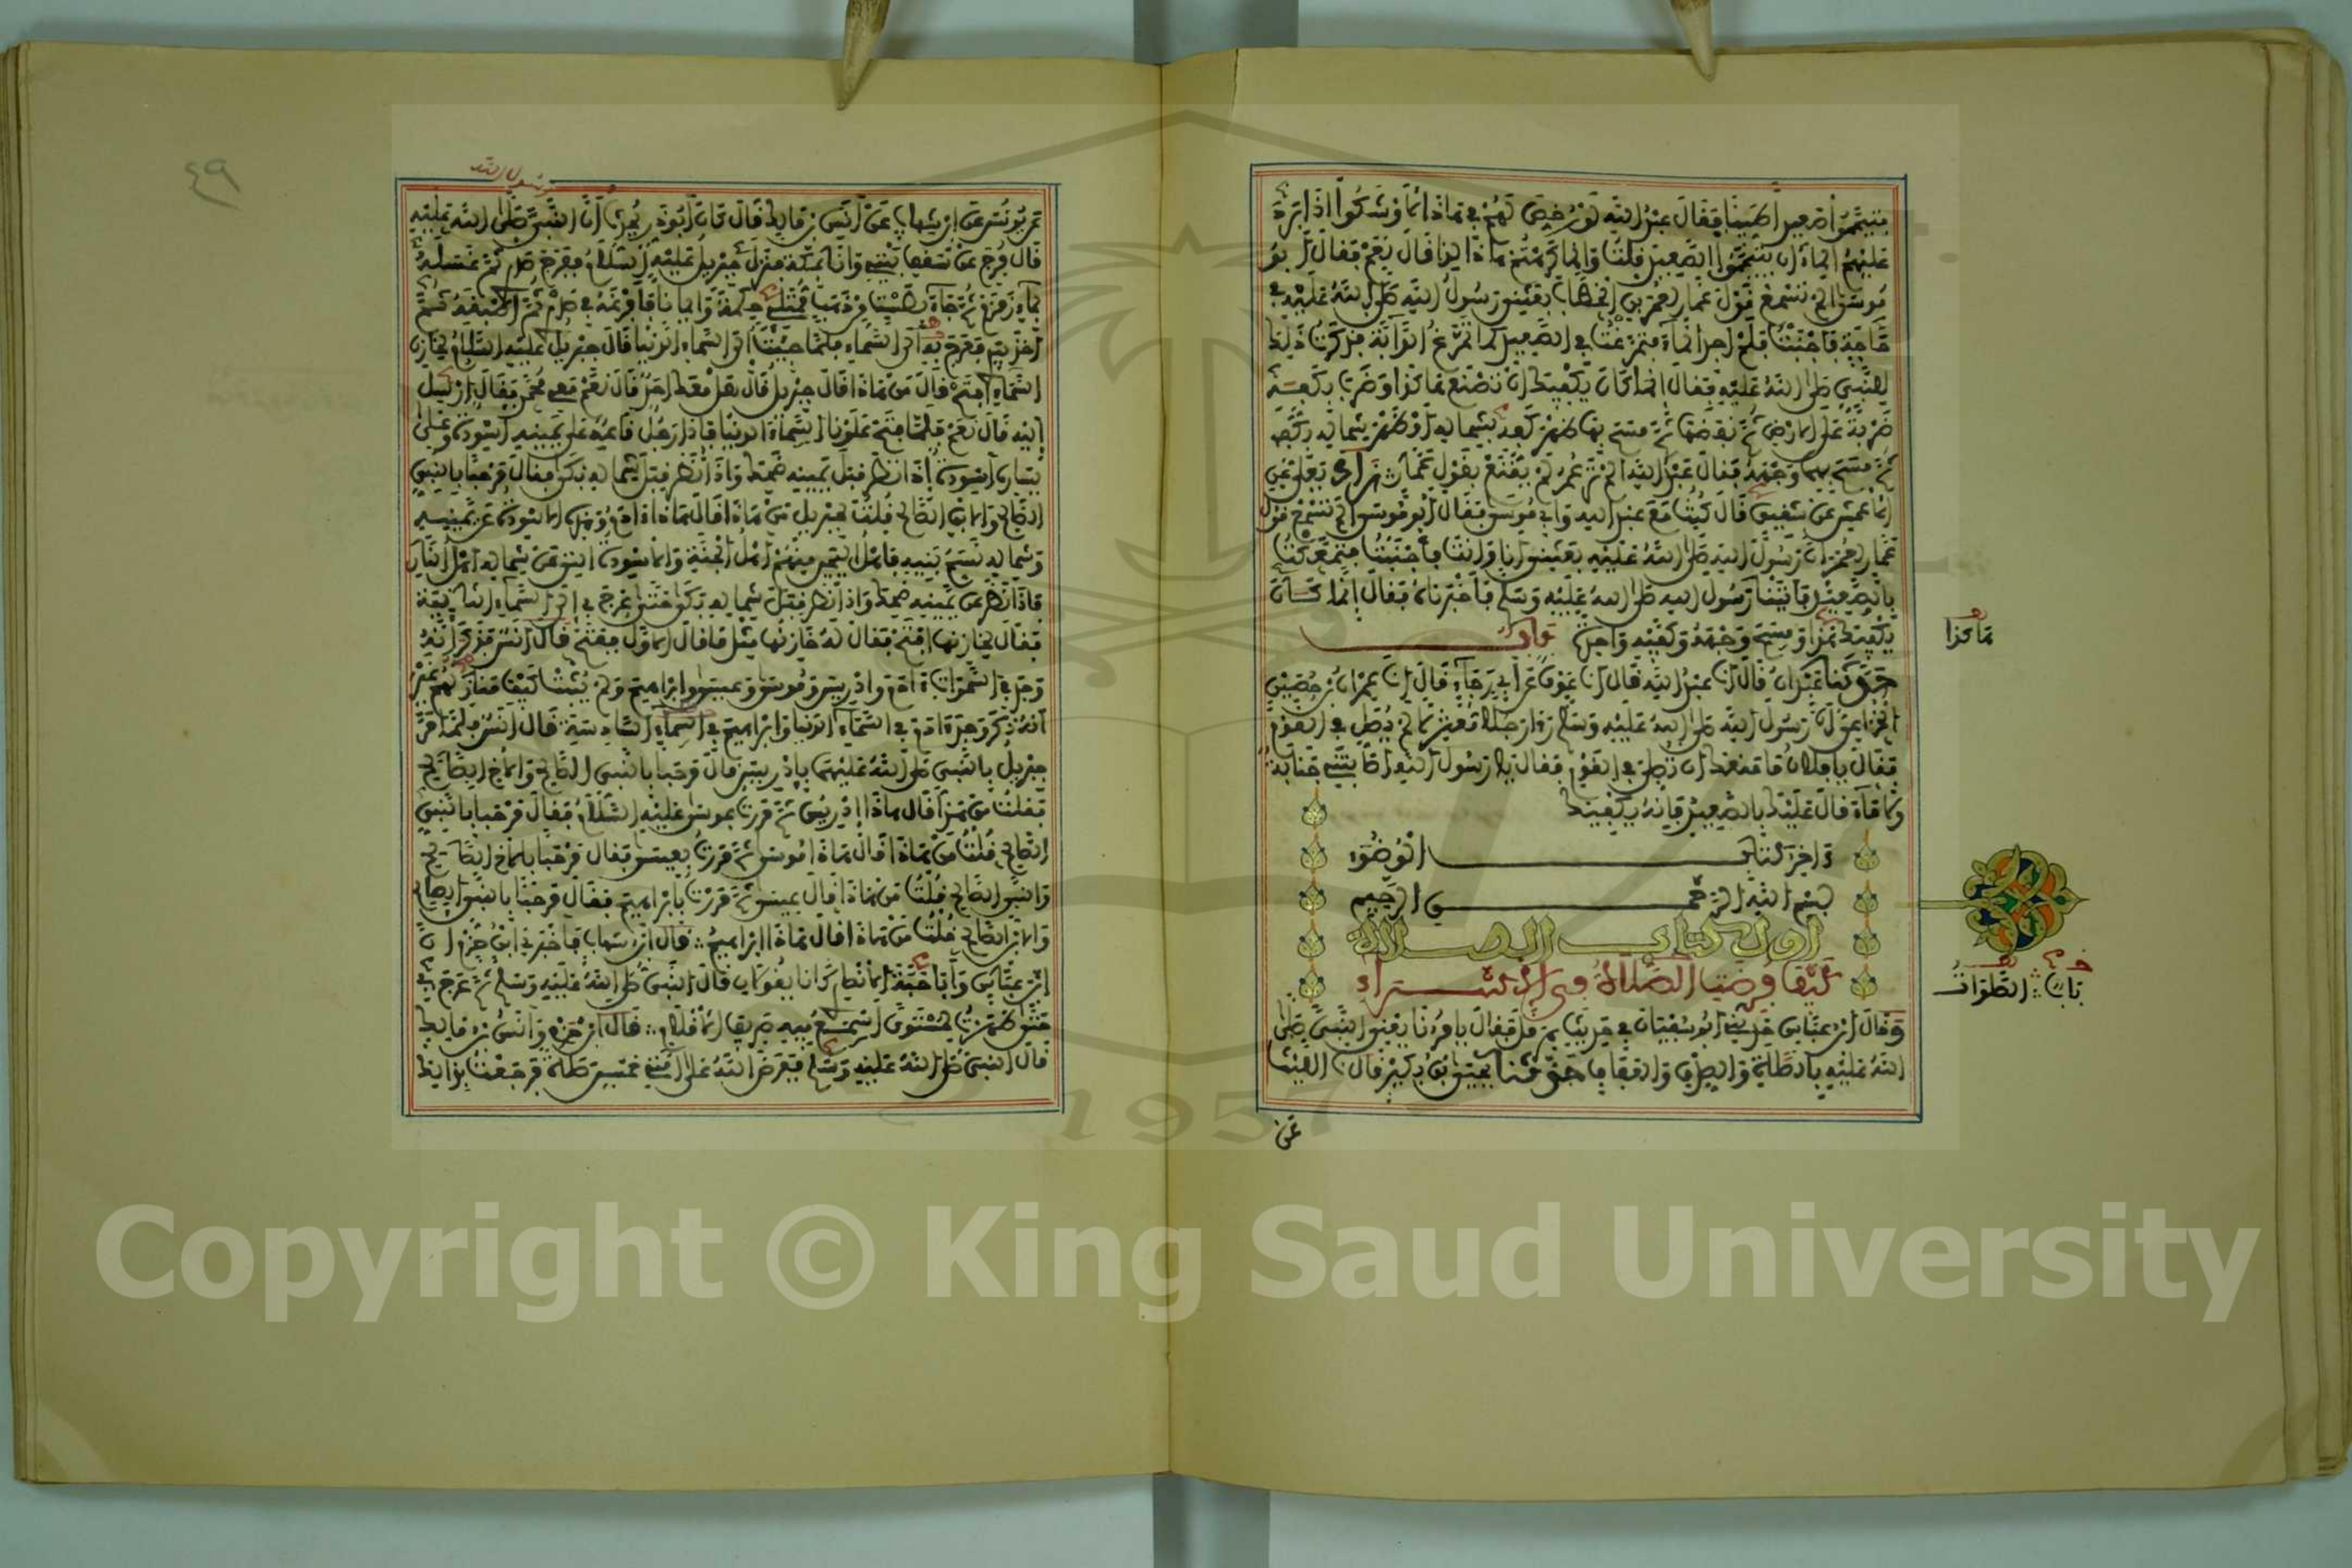 فتيمموا صعيدا طيبا فقال عبد الله لو رخص لهم في هاذا لأوشكوا إذا برد
عليهم الماء أن يتيمموا الصعيد قلت وإنما كرهتم هاذا لذا قال نعم فقال أبو
موسى ألم تسمع قول عمار لعمر بن الخطاب بعثني رسول الله صلى الله عليه في
حاجة فأجنبت فلم أجد الماء فتمرغت في الصعيد كما تمرغ الدابة فذكرت ذلك
للنبي صلى الله عليه فقال إنما كان يكفيك أن تصنع هاكذا وضرب بكفه
ضربة على الأرض ثم نفضها ثم مسح بها ظهر كفه بشماله أو ظهر شماله بكفه
ثم مسح بهما وجهه فقال عبد الله ألم تر عمر لم يقنع بقول عمار زاد يعلى عن
الأعمش عن شقيق قال كنت مع عبد الله وأبي موسى فقال أبو موسى ألم تسمع قول
عمار لعمر إن رسول الله صلى الله عليه بعثني أنا وأنت فأجنبت فتمعكت
بالصعيد فأتينا رسول الله صلى الله عليه وسلم فأخبرناه فقال إنما كان
يكفيك هذا ومسح وجهه وكفيه واحدة باب
هاكذا
حدثنا عبدان قال أنا عبد الله قال أنا عوف عن أبي رجاء قال نا عمران بن حصين
الخزاعي أن رسول الله صلى الله عليه وسلم رأى رجلا معتزلا لم يصل في القوم
فقال يا فلان ما منعك أن تصلي في القوم فقال يا رسول الله أصابتني جنابة
ولا ماء قال عليك بالصعيد فإنه يكفيك
آخر كتاب الوضوء
بسم الله الرحمن الرحيم
أول كتاب الصلاة
كيف فرضت الصلاة في الإسراء
باب الطواف
وقال ابن عباس حدثني أبو سفيان في حديث هرقل فقال يأمرنا يعني النبي صلى
الله عليه بالصلاة والصدق والعفاف حدثنا يحيى بن بكير قال نا الليث
عن
٤٩
رسول الله
عن يونس عن ابن شهاب عن أنس بن مالك قال كان أبو ذر يحدث أن النبي صلى الله عليه
قال فرج عن سقف بيتي وأنا بمكة فنزل جبريل عليه السلام ففرج صدري ثم غسله
بماء زمزم ثم جاء بطست من ذهب ممتلئ حكمة وإيمانا فأفرغه في صدري ثم أطبقه ثم
أخذ بيدي فعرج به إلى السماء فلما جئت إلى السماء الدنيا قال جبريل عليه السلام لخازن
السماء افتح قال من هاذا قال جبريل قال هل معك أحد قال نعم معي محمد فقال أأرسل
إليه قال نعم فلما فتح علونا السماء الدنيا فإذا رجل قاعد على يمينه أسودة وعلى
يساره أسودة إذا نظر قبل يمينه ضحك وإذا نظر قبل شماله بكى فقال مرحبا بالنبي
الصالح والابن الصالح قلت لجبريل من هاذا قال هاذا آدم وهذه الأسودة عن يمينه
وشماله نسم بنيه فأهل اليمين منهم أهل الجنة والأسودة التي عن شماله أهل النار
فإذا نظر عن يمينه ضحك وإذا نظر قبل شماله بكى حتى عرج بي إلى السماء الثانية
فقال لخازنها افتح فقال له خازنها مثل ما قال الأول ففتح قال أنس فذكر أنه
وجد في السموات آدم وإدريس وموسى وعيسى وإبراهيم ولم يثبت كيف منازلهم غير
أنه ذكر وجد آدم في السماء الدنيا وإبراهيم في السماء السادسة قال أنس فلما مر
جبريل بالنبي صلى الله عليهما بإدريس قال مرحبا بالنبي الصالح والأخ الصالح
فقلت من هذا قال هاذا إدريس ثم مررت بموسى عليه السلام فقال مرحبا بالنبي
الصالح قلت من هاذا قال هاذا موسى ثم مررت بعيسى فقال مرحبا بالأخ الصالح
والنبي الصالح قلت من هاذا قال عيسى ثم مررت بإبراهيم فقال مرحبا بالنبي الصالح
والابن الصالح قلت من هاذا قال هاذا إبراهيم قال ابن شهاب فأخبرني ابن حزم أن
ابن عباس وأبا حبة الأنصاري كانا يقولان قال النبي صلى الله عليه وسلم ثم عرج بي
حتى ظهرت لمستوى أسمع فيه صريف الأقلام قال ابن حزم وأنس بن مالك
قال النبي صلى الله عليه وسلم ففرض الله على أمتي خمسين صلاة فرجعت بذلك
Copyright © King Saud University
1957